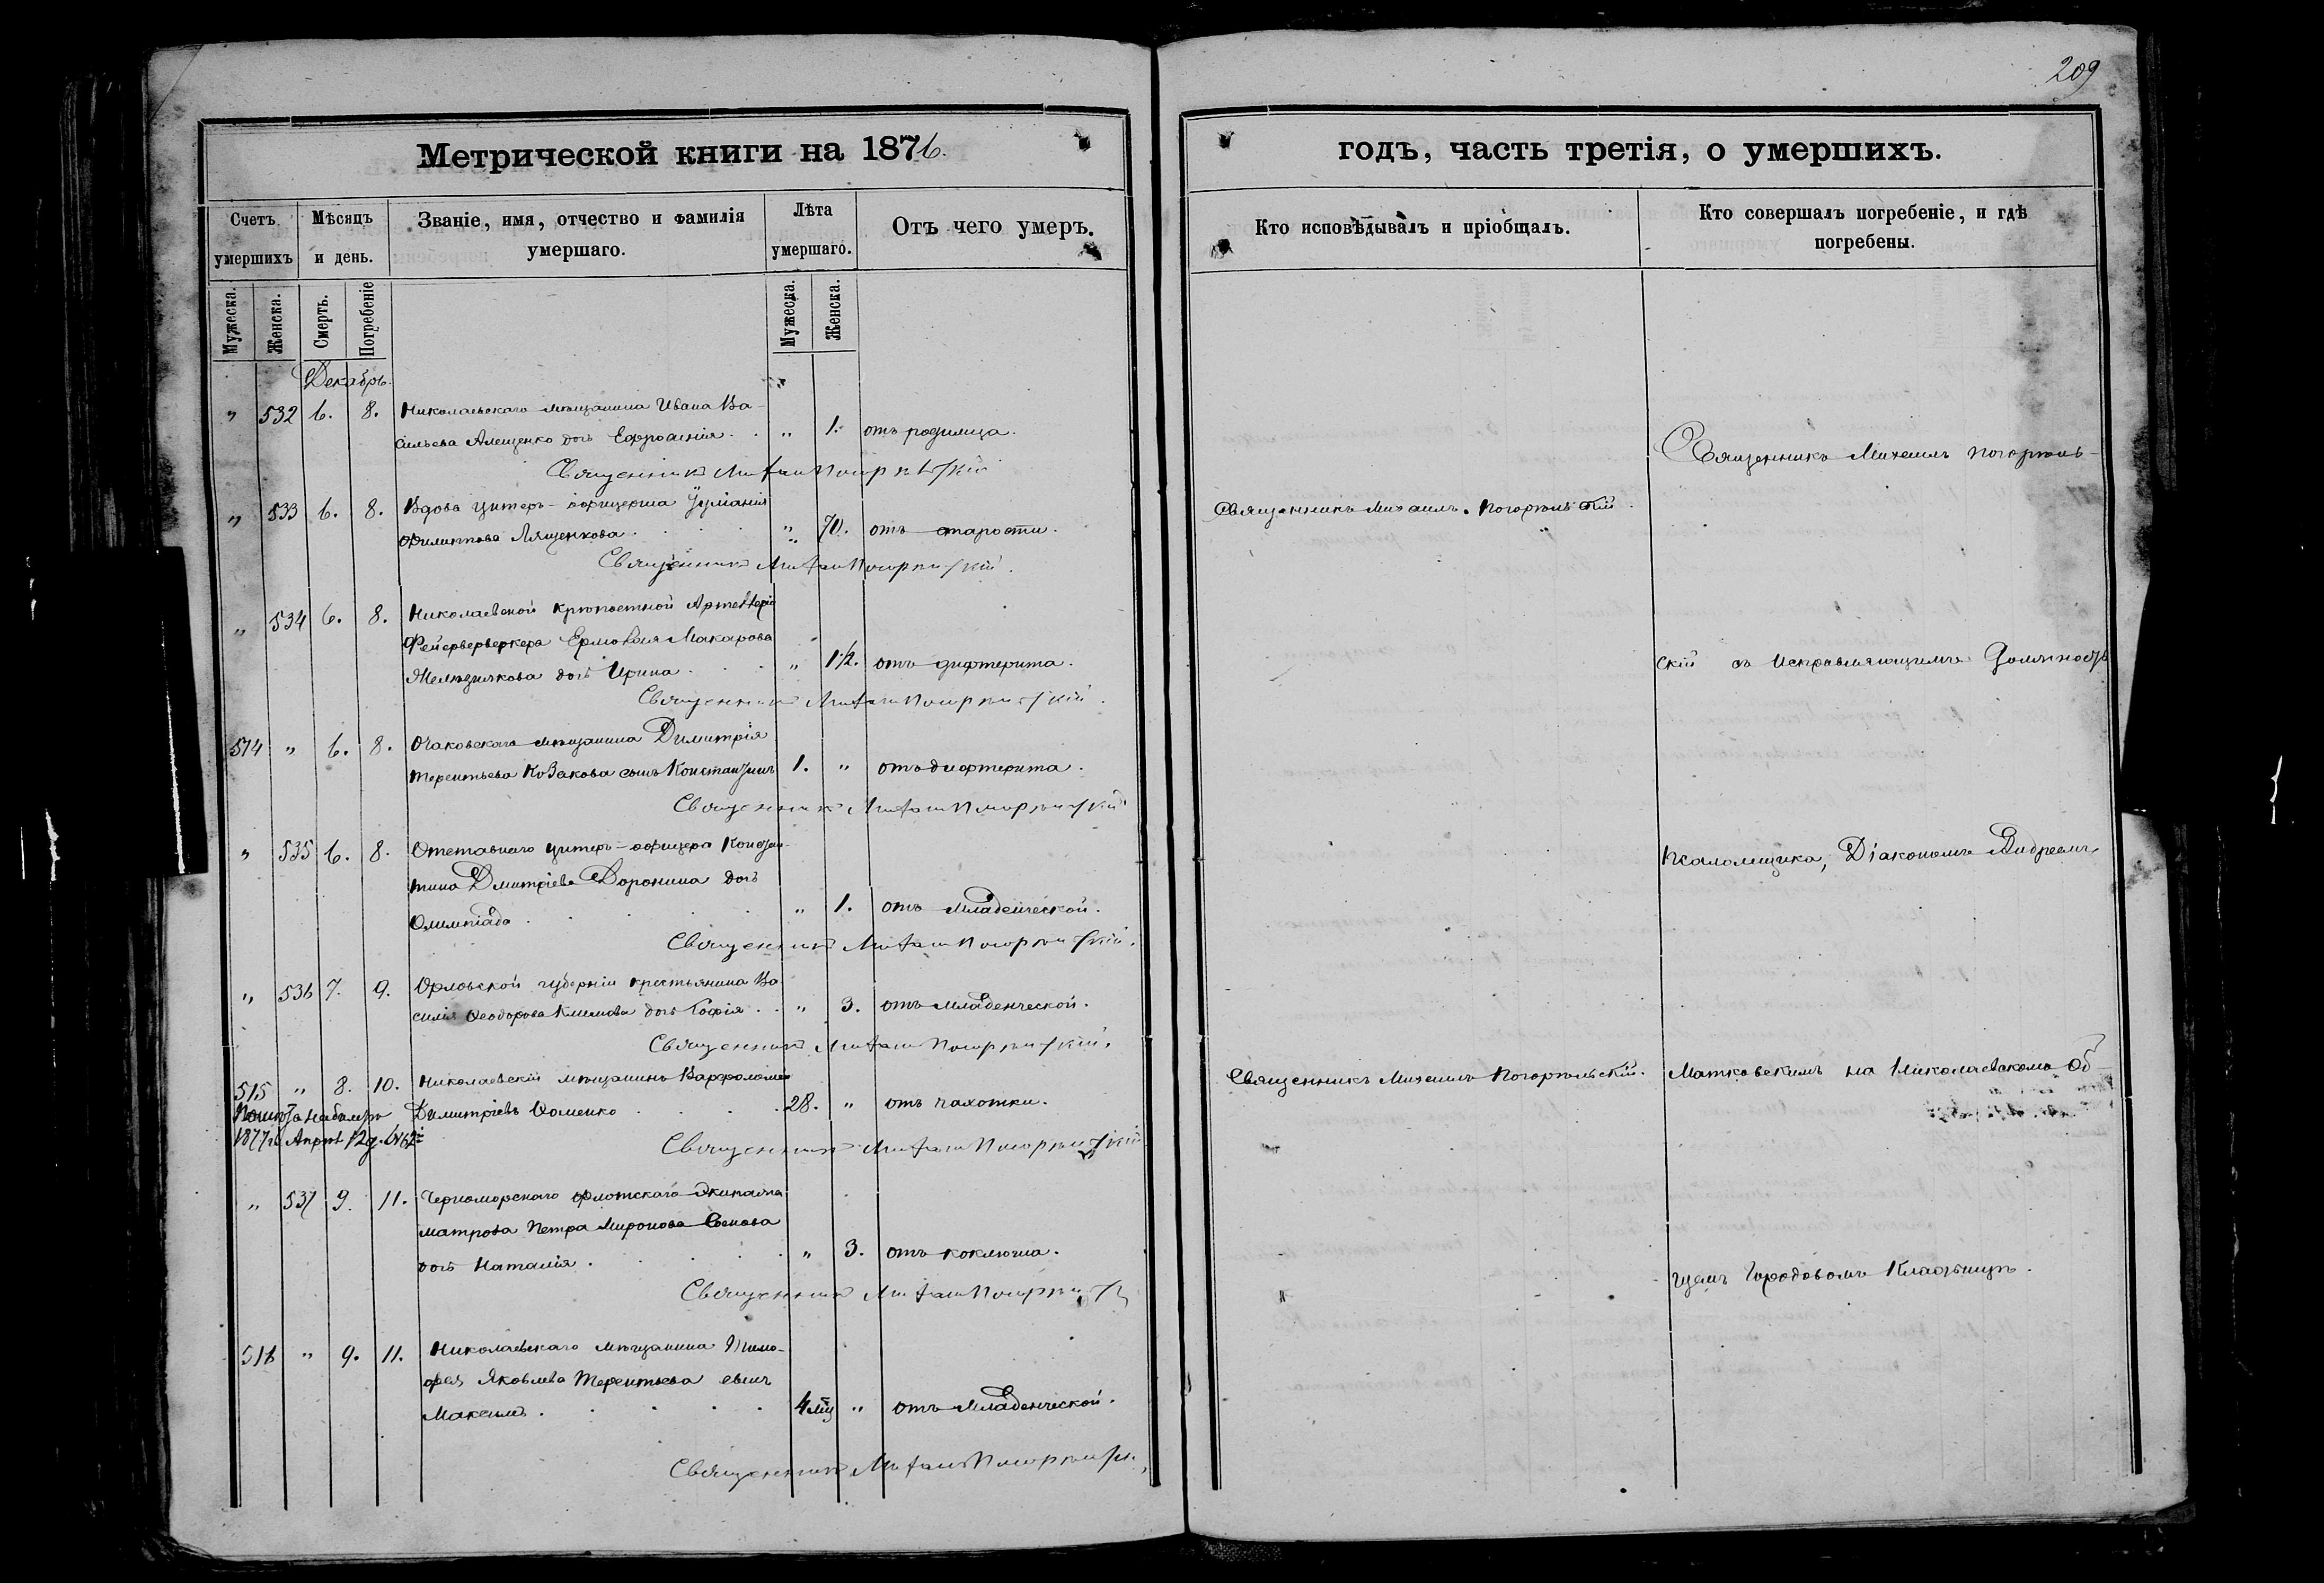 209
Метрической книги на 1876.
годъ, часть третія, о умершихъ.
Счетъ умершихъ
Мѣсяцъ и день.
Званіе, имя, отчество и фамилія умершаго.
Лѣта умершаго.
Отъ чего умеръ.
Кто исповѣдывалъ и пріобщалъ.
Кто совершалъ погребеніе, и гдѣ погребены.
Мужеска. Женска. Смерть. Погребеніе Мужеска. Женска.
Декабрь.
" 532 6. 8. Николаевскаго мѣщанина Ивана Ва-
сильева Алещенко дочь Ефросинія . . " 1. отъ родимца.
Священникъ Михаилъ Погорѣльскій
" 533 6. 8. Вдова унтеръ-офицерша Іуліанія
Филиппова Лященкова . " 70. отъ старости.
Священникъ Михаилъ Погорѣльскій.
Священникъ Михаилъ Погорѣльскій.
" 534 6. 8. Николаевской крѣпостной
Фейерверкера Макарова
дочь Ирина . . " 1 1/2. отъ дифтерита.
Священникъ Михаилъ Погорѣльскій.
514 " 6. 8. Очаковскаго мѣщанина Димитрія
Терентьева Козакова сынъ Константинъ 1. " отъ дифтерита.
Священникъ Михаилъ Погорѣльскій
" 535 6. 8. Отставнаго унтеръ-офицера Констан-
тина Дмитріева Доронина дочь
Олимпіада . . . . " 1. отъ младенческой.
Священникъ Михаилъ Погорѣльскій.
" 536 7. 9. Орловской губерніи крестьянина Ва
силія Ѳеодорова Климова дочь Софія . . " 3. отъ младенческой.
Священникъ Михаилъ Погорѣльскій.
515 " 8. 10. Николаевскій мѣщанинъ Варфоломей
Димитріевъ Ѳоменко . . . . 28. " отъ чахотки.
1877 г. Апрѣл 12 д.
Священникъ Михаилъ Погорѣльскій
Священникъ Михаилъ Погорѣльскій.
" 537 9. 11. Черноморскаго флотскаго экипажа
матроса Петра Миронова
дочь Наталія . . . . " 3. отъ коклюша.
Священникъ Михаилъ
516 " 9. 11. Николаевскаго мѣщанина Тимо-
фея Яковлева Терентьева сынъ
Максимъ . . . . 4 мѣц " отъ младенческой.
Священникъ Михаилъ
Священникъ Михаилъ Погорѣль-
скій съ исправляющимъ должность
псаломщика, Діакономъ Андреемъ
Матковскимъ на Николаевскомъ об-
щемъ городовомъ кладбищѣ.